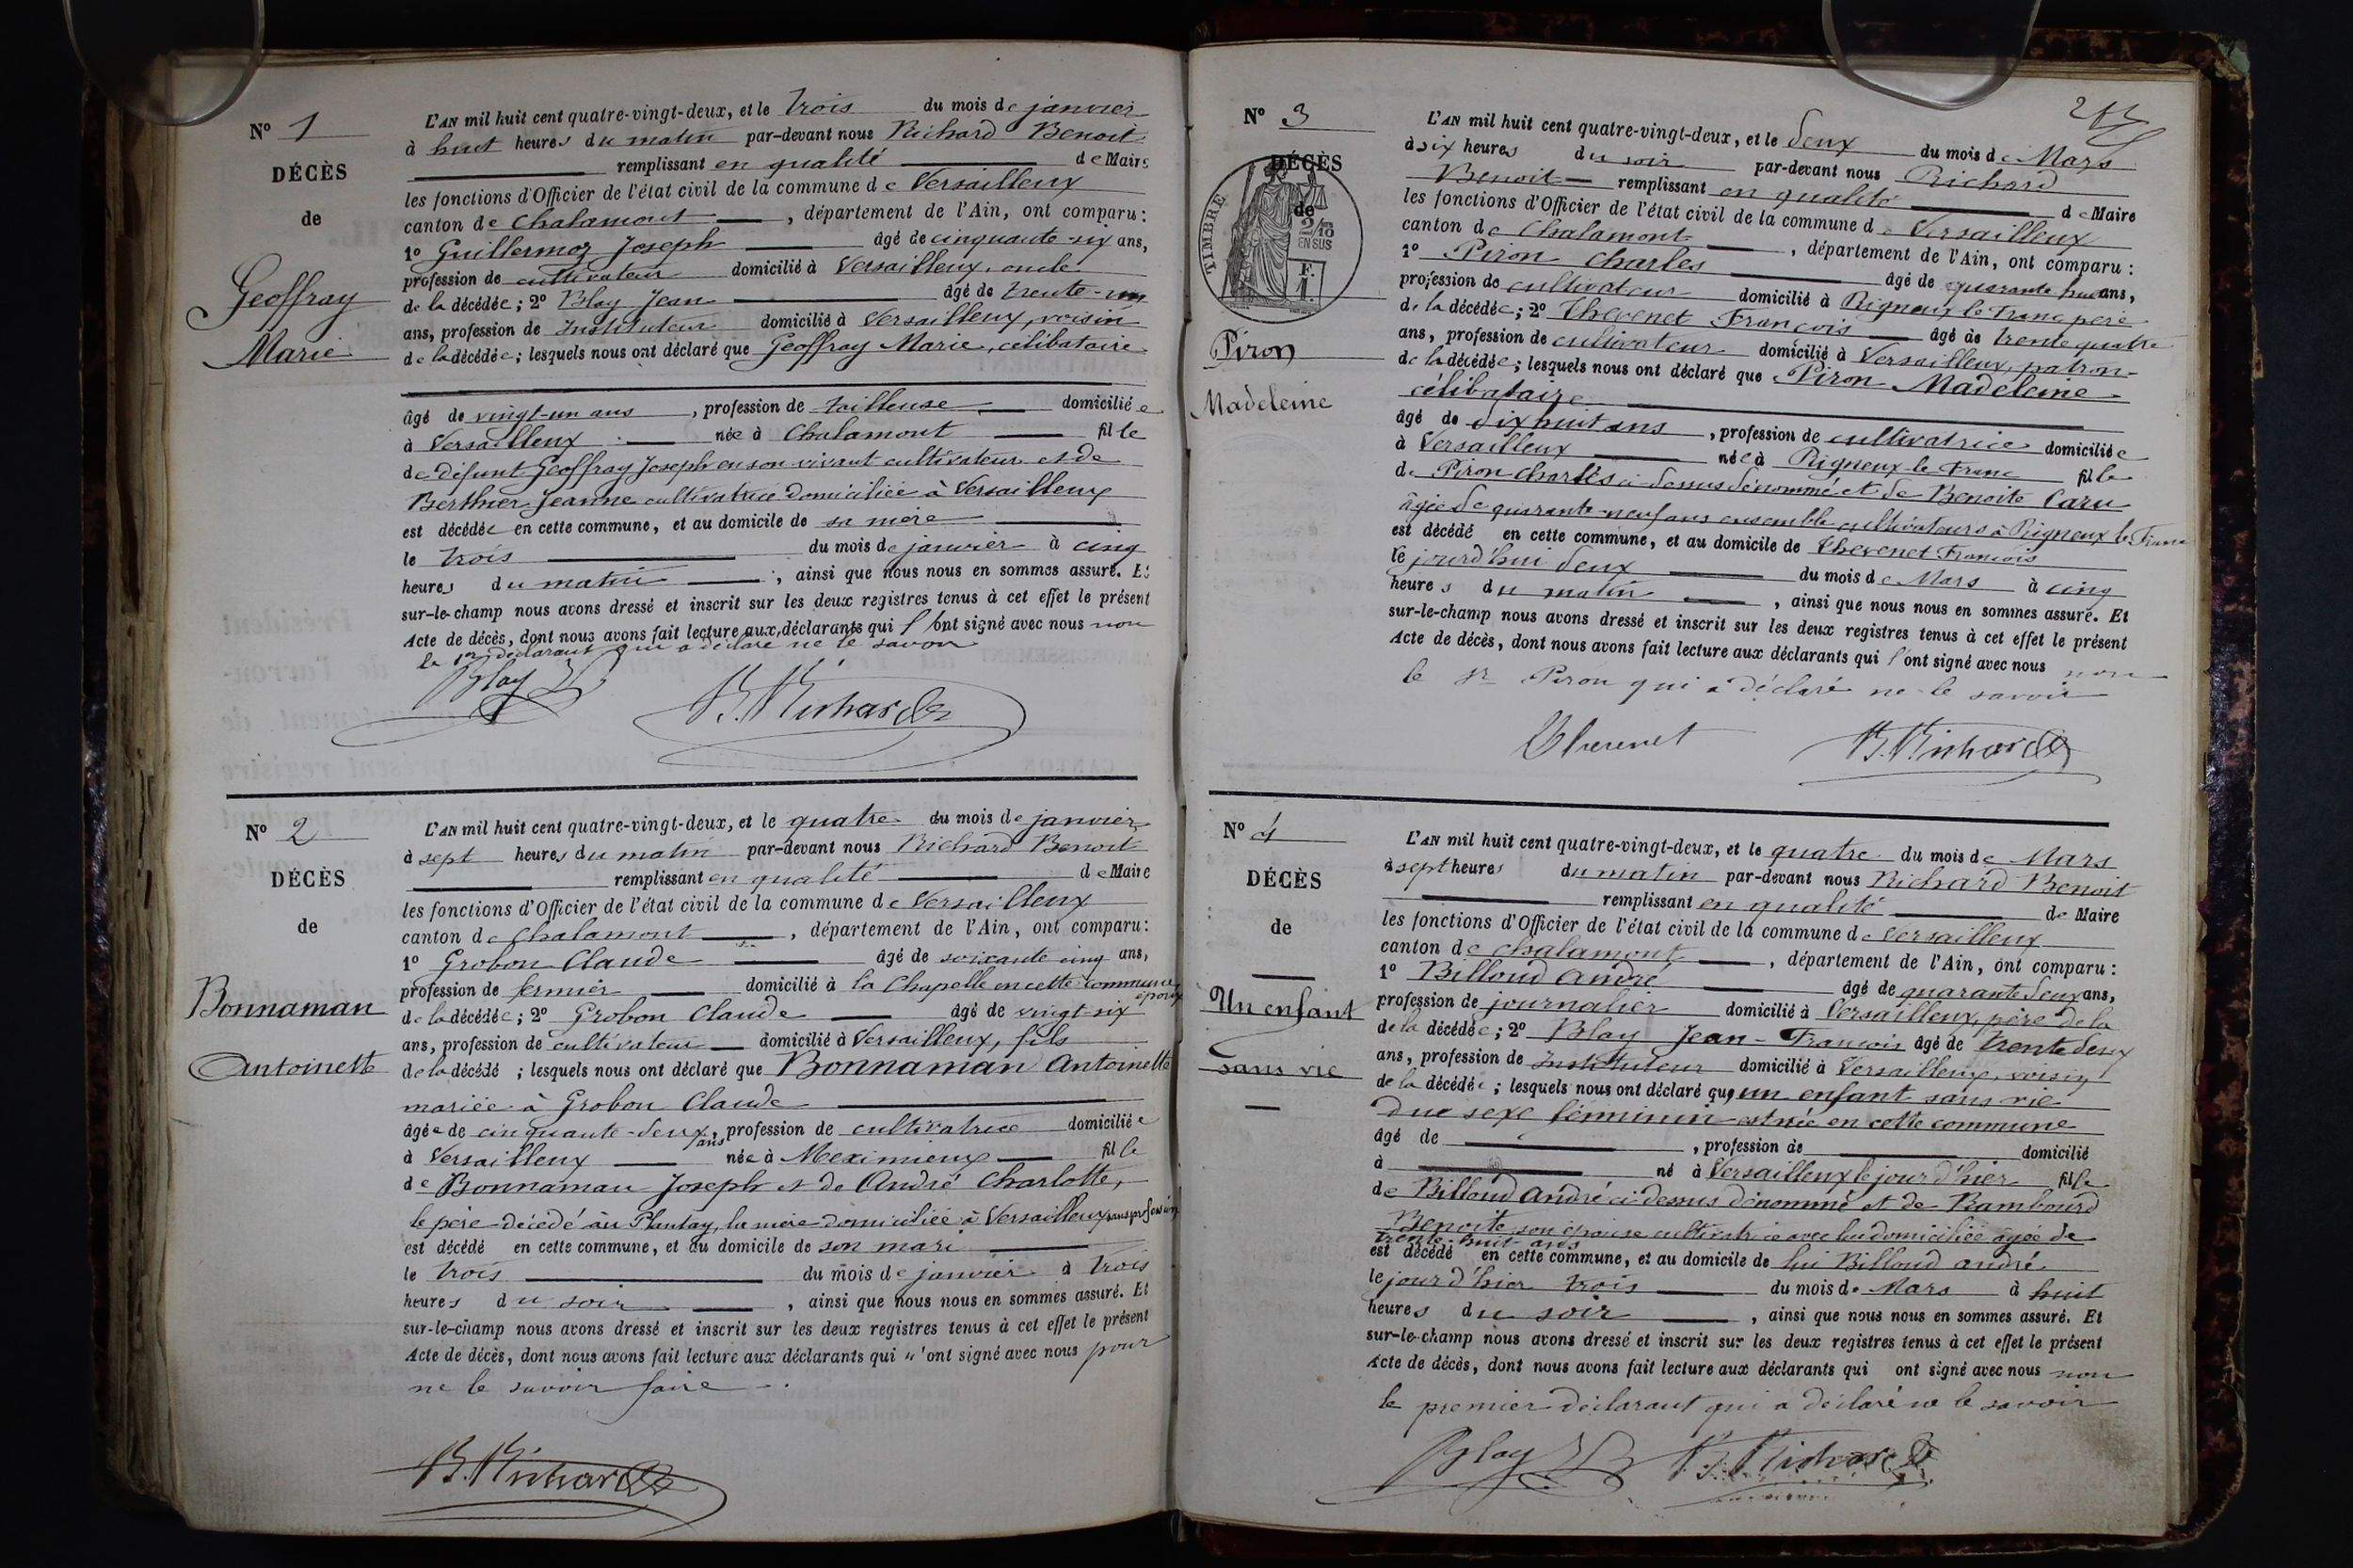 N° 1
DÉCÈS
de
Geoffray
Marie
L'AN mil huit cent quatre-vingt-deux, et le trois du mois de janvier
à huit heures du matin par-devant nous Richard Benoit
remplissant en qualité de Maire
les fonctions d'Officier de l'état civil de la commune de Versailleux
canton de Chalamont, département de l'Ain, ont comparu :
1° Guillermoz Joseph âgé de cinquante-six ans,
profession de cultivateur domicilié à Versailleux, oncle
de la décédée ; 2° Blay Jean âgé de trente-un
ans, profession de Instituteur domicilié à Versailleux, voisin
de la décédée ; lesquels nous ont déclaré que Geoffray Marie, célibataire
âgé de vingt-un ans, profession de tailleuse domiciliée
à Versailleux née à Chalamont fille
de défunt Geoffray Joseph en son vivant cultivateur et de
Berthier Jeanne cultivatrice domiciliée à Versailleux
est décédée en cette commune, et au domicile de sa mère
le trois du mois de janvier à cinq
heures du matin, ainsi que nous nous en sommes assuré. Et
sur-le-champ nous avons dressé et inscrit sur les deux registres tenus à cet effet le présent
Acte de décès, dont nous avons fait lecture aux déclarants qui l'ont signé avec nous non
le 1er déclarant qui a déclaré ne le savoir
Blay B. Richard
N° 2
DÉCÈS
de
Bonnaman
Antoinette
L'AN mil huit cent quatre-vingt-deux, et le quatre du mois de janvier
à sept heures du matin par-devant nous Richard Benoit
remplissant en qualité de Maire
les fonctions d'Officier de l'état civil de la commune de Versailleux
canton de Chalamont, département de l'Ain, ont comparu :
1° Grobon Claude âgé de soixante cinq ans,
profession de fermier domicilié à la Chapelle en cette commune époux
de la décédée ; 2° Grobon Claude âgé de vingt-six
ans, profession de cultivateur domicilié à Versailleux, fils
de la décédé ; lesquels nous ont déclaré que Bonnaman Antoinette
mariée à Grobon Claude
âgée de cinquante-deux ans, profession de cultivatrice domiciliée
à Versailleux née à Meximieux fille
de Bonnaman Joseph et de André Charlotte,
le père décédé au Plantay, la mère domiciliée à Versailleux sans profession
est décédé en cette commune, et au domicile de son mari
le trois du mois de janvier à trois
heures du soir, ainsi que nous nous en sommes assuré. Et
sur-le-champ nous avons dressé et inscrit sur les deux registres tenus à cet effet le présent
Acte de décès, dont nous avons fait lecture aux déclarants qui n'ont signé avec nous pour
ne le savoir faire
B. Richard
N° 3
DÉCÈS
de
TIMBRE
2/10
EN SUS
F.
1.
Piron
Madeleine
L'AN mil huit cent quatre-vingt-deux, et le deux du mois de Mars
à six heures du soir par-devant nous Richard
Benoit remplissant en qualité de Maire
les fonctions d'Officier de l'état civil de la commune de Versailleux
canton de Chalamont, département de l'Ain, ont comparu :
1° Piron Charles âgé de quarante huit ans,
profession de cultivateur domicilié à Rigneux-le-Franc père
de la décédée ; 2° Thevenet François âgé de trente quatre
ans, profession de cultivateur domicilié à Versailleux, patron
de la décédée ; lesquels nous ont déclaré que Piron Madeleine
célibataire
âgé de dix huit ans, profession de cultivatrice domiciliée
à Versailleux née à Rigneux-le-Franc fille
de Piron Charles ci-dessus dénommé et de Benoite Caru
âgée de quarante-neuf ans ensemble cultivateurs à Rigneux le Franc
est décédé en cette commune, et au domicile de Thevenet François
le jourd'hui deux du mois de Mars à cinq
heures du matin, ainsi que nous nous en sommes assuré. Et
sur-le-champ nous avons dressé et inscrit sur les deux registres tenus à cet effet le présent
Acte de décès, dont nous avons fait lecture aux déclarants qui l'ont signé avec nous non
le sr Piron qui a déclaré ne le savoir
Thevenet B. Richard
N° 4
DÉCÈS
de
Un enfant
sans vie
L'AN mil huit cent quatre-vingt-deux, et le quatre du mois de Mars
à sept heures du matin par-devant nous Richard Benoit
remplissant en qualité de Maire
les fonctions d'Officier de l'état civil de la commune de Versailleux
canton de Chalamont, département de l'Ain, ont comparu :
1° Billoud André âgé de quarante deux ans,
profession de journalier domicilié à Versailleux, père de la
de la décédée ; 2° Blay Jean-François âgé de trente deux
ans, profession de Instituteur domicilié à Versailleux, voisin
de la décédée ; lesquels nous ont déclaré que un enfant sans vie
due sexe féminin est née en cette commune
âgé de, profession de domicilié
à né à Versailleux le jour d'hier fille
de Billoud André ci-dessus dénommé et de Rambourd
Benoite son épouse cultivatrice avec lui domiciliée âgée de
trente-huit ans
est décédé en cette commune, et au domicile de lui Billoud André
le jour d'hier trois du mois de Mars à huit
heures du soir, ainsi que nous nous en sommes assuré. Et
sur-le-champ nous avons dressé et inscrit sur les deux registres tenus à cet effet le présent
Acte de décès, dont nous avons fait lecture aux déclarants qui ont signé avec nous non
le premier déclarant qui a déclaré ne le savoir
Blay B. Richard